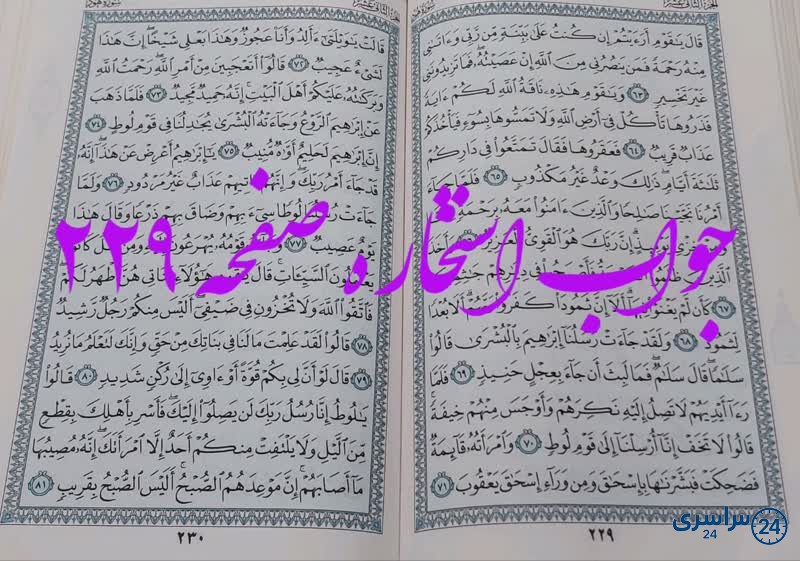 سورة هود
الجزء الثاني عشر
قَالَ يَٰقَوْمِ أَرَءَيْتُمْ إِن كُنتُ عَلَىٰ بَيِّنَةٍ مِّن رَّبِّي وَءَاتَىٰنِي
مِنْهُ رَحْمَةً فَمَن يَنصُرُنِي مِنَ ٱللَّهِ إِنْ عَصَيْتُهُۥ فَمَا تَزِيدُونَنِي
غَيْرَ تَخْسِيرٍ ٦٣ وَيَٰقَوْمِ هَٰذِهِۦ نَاقَةُ ٱللَّهِ لَكُمْ ءَايَةً
فَذَرُوهَا تَأْكُلْ فِيٓ أَرْضِ ٱللَّهِ وَلَا تَمَسُّوهَا بِسُوٓءٍ فَيَأْخُذَكُمْ
عَذَابٌ قَرِيبٌ ٦٤ فَعَقَرُوهَا فَقَالَ تَمَتَّعُوا۟ فِي دَارِكُمْ
ثَلَٰثَةَ أَيَّامٍ ذَٰلِكَ وَعْدٌ غَيْرُ مَكْذُوبٍ ٦٥ فَلَمَّا جَآءَ
أَمْرُنَا نَجَّيْنَا صَٰلِحًا وَٱلَّذِينَ ءَامَنُوا۟ مَعَهُۥ بِرَحْمَةٍ
يَوْمِئِذٍ إِنَّ رَبَّكَ هُوَ ٱلْقَوِيُّ ٱلْعَزِيزُ
ٱلَّذِينَ فِي دِيَٰرِهِمْ
٦٧ كَأَن لَّمْ يَغْنَوْا۟ فِيهَآ أَلَآ إِنَّ ثَمُودَا۟ كَفَرُوا۟ رَبَّهُمْ أَلَا بُعْدًا
لِّثَمُودَ ٦٨ وَلَقَدْ جَآءَتْ رُسُلُنَآ إِبْرَٰهِيمَ بِٱلْبُشْرَىٰ قَالُوا۟
سَلَٰمًا قَالَ سَلَٰمٌ فَمَا لَبِثَ أَن جَآءَ بِعِجْلٍ حَنِيذٍ ٦٩ فَلَمَّا
رَءَآ أَيْدِيَهُمْ لَا تَصِلُ إِلَيْهِ نَكِرَهُمْ وَأَوْجَسَ مِنْهُمْ خِيفَةً
قَالُوا۟ لَا تَخَفْ إِنَّآ أُرْسِلْنَآ إِلَىٰ قَوْمِ لُوطٍ ٧٠ وَٱمْرَأَتُهُۥ قَآئِمَةٌ
فَضَحِكَتْ فَبَشَّرْنَٰهَا بِإِسْحَٰقَ وَمِن وَرَآءِ إِسْحَٰقَ يَعْقُوبَ ٧١
٢٢٩
الجزء الثاني عشر
سورة هود
قَالَتْ يَٰوَيْلَتَىٰٓ ءَأَلِدُ وَأَنَا۠ عَجُوزٌ وَهَٰذَا بَعْلِي شَيْخًا إِنَّ هَٰذَا
لَشَيْءٌ عَجِيبٌ ٧٢ قَالُوٓا۟ أَتَعْجَبِينَ مِنْ أَمْرِ ٱللَّهِ رَحْمَتُ ٱللَّهِ
وَبَرَكَٰتُهُۥ عَلَيْكُمْ أَهْلَ ٱلْبَيْتِ إِنَّهُۥ حَمِيدٌ مَّجِيدٌ ٧٣ فَلَمَّا ذَهَبَ
عَنْ إِبْرَٰهِيمَ ٱلرَّوْعُ وَجَآءَتْهُ ٱلْبُشْرَىٰ يُجَٰدِلُنَا فِي قَوْمِ لُوطٍ ٧٤
إِنَّ إِبْرَٰهِيمَ لَحَلِيمٌ أَوَّٰهٌ مُّنِيبٌ ٧٥ يَٰٓإِبْرَٰهِيمُ أَعْرِضْ عَنْ هَٰذَآ إِنَّهُۥ
قَدْ جَآءَ أَمْرُ رَبِّكَ وَإِنَّهُمْ ءَاتِيهِمْ عَذَابٌ غَيْرُ مَرْدُودٍ ٧٦ وَلَمَّا
جَآءَتْ رُسُلُنَا لُوطًا سِيٓءَ بِهِمْ وَضَاقَ بِهِمْ ذَرْعًا وَقَالَ هَٰذَا
يَوْمٌ عَصِيبٌ ٧٧ وَجَآءَهُۥ قَوْمُهُۥ يُهْرَعُونَ إِلَيْهِ وَمِن قَبْلُ كَانُوا۟
يَعْمَلُونَ ٱلسَّيِّـَٔاتِ قَالَ يَٰقَوْمِ هَٰٓؤُلَآءِ بَنَاتِي هُنَّ أَطْهَرُ لَكُمْ
فَٱتَّقُوا۟ ٱللَّهَ وَلَا تُخْزُونِ فِي ضَيْفِيٓ أَلَيْسَ مِنكُمْ رَجُلٌ رَّشِيدٌ
٧٨ قَالُوا۟ لَقَدْ عَلِمْتَ مَا لَنَا فِي بَنَاتِكَ مِنْ حَقٍّ وَإِنَّكَ لَتَعْلَمُ مَا نُرِيدُ
٧٩ قَالَ لَوْ أَنَّ لِي بِكُمْ قُوَّةً أَوْ ءَاوِيٓ إِلَىٰ رُكْنٍ شَدِيدٍ ٨٠ قَالُوا۟
يَٰلُوطُ إِنَّا رُسُلُ رَبِّكَ لَن يَصِلُوٓا۟ إِلَيْكَ فَأَسْرِ بِأَهْلِكَ بِقِطْعٍ
مِّنَ ٱلَّيْلِ وَلَا يَلْتَفِتْ مِنكُمْ أَحَدٌ إِلَّا ٱمْرَأَتَكَ إِنَّهُۥ مُصِيبُهَا
مَآ أَصَابَهُمْ إِنَّ مَوْعِدَهُمُ ٱلصُّبْحُ أَلَيْسَ ٱلصُّبْحُ بِقَرِيبٍ ٨١
٢٣٠
جواب استخاره صفحه ۲۲۹
سراسری 24
24